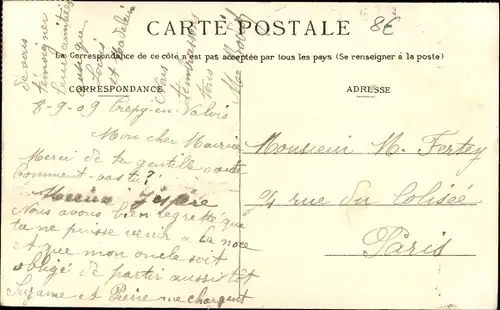 CARTE POSTALE
8€
La Correspondance de ce côté n'est pas acceptée par tous les pays (Se renseigner à la poste)
CORRESPONDANCE
ADRESSE
8-9-09 Crépy-en-Valois
Mon cher Maurice
Merci de ta gentille carte
Comment vas-tu?
Mieux j'espère
Nous avons bien regretté que
tu ne puisse venir a la noce
et que mon oncle soit
obligé de partir aussitôt
Suzanne et Pierre me chargent
de vous
témoigner
leurs amitiés
ainsi que
Louis
et Madeleine
t'embrassons
très
Monsieur M. Fertey
rue du Colisée
Paris